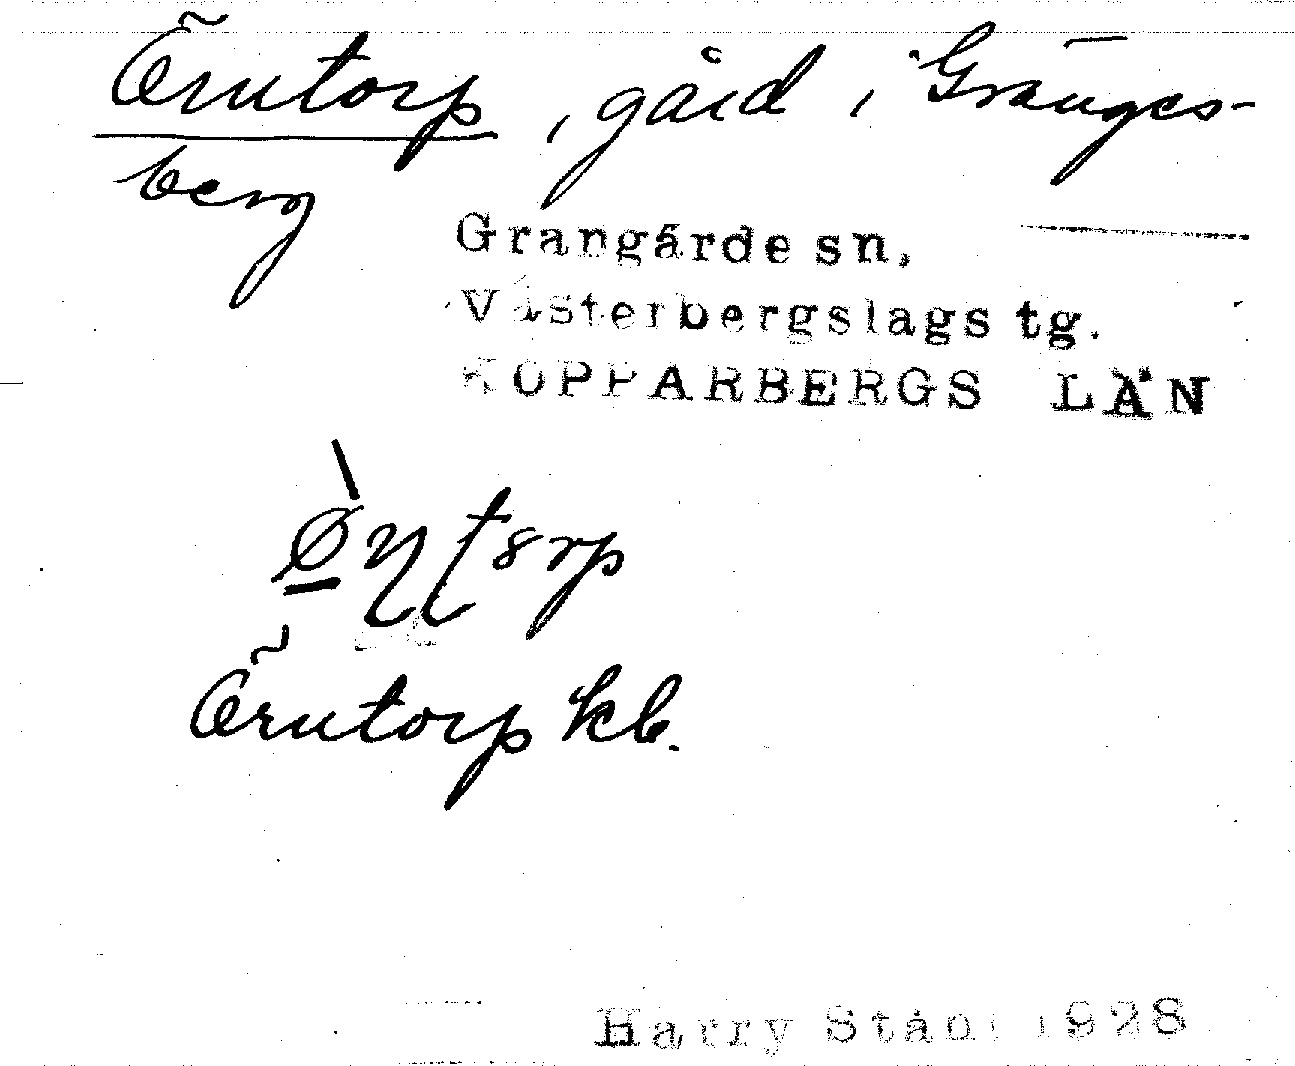 Örntorp, gård i Gränges-
berg
Grangärde sn,
Västerbergslags tg.
KOPPARBERGS LÄN
Örntorp kb.
Harry Ståhl 1928